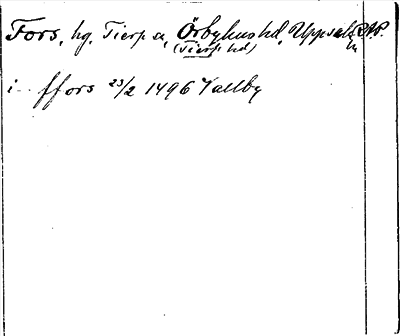 Fors, hg. Tierp sn, Örbyhus hd, Uppsala län RAP.
(Tierps hd)
i ffors 23/2 1496 Vallby